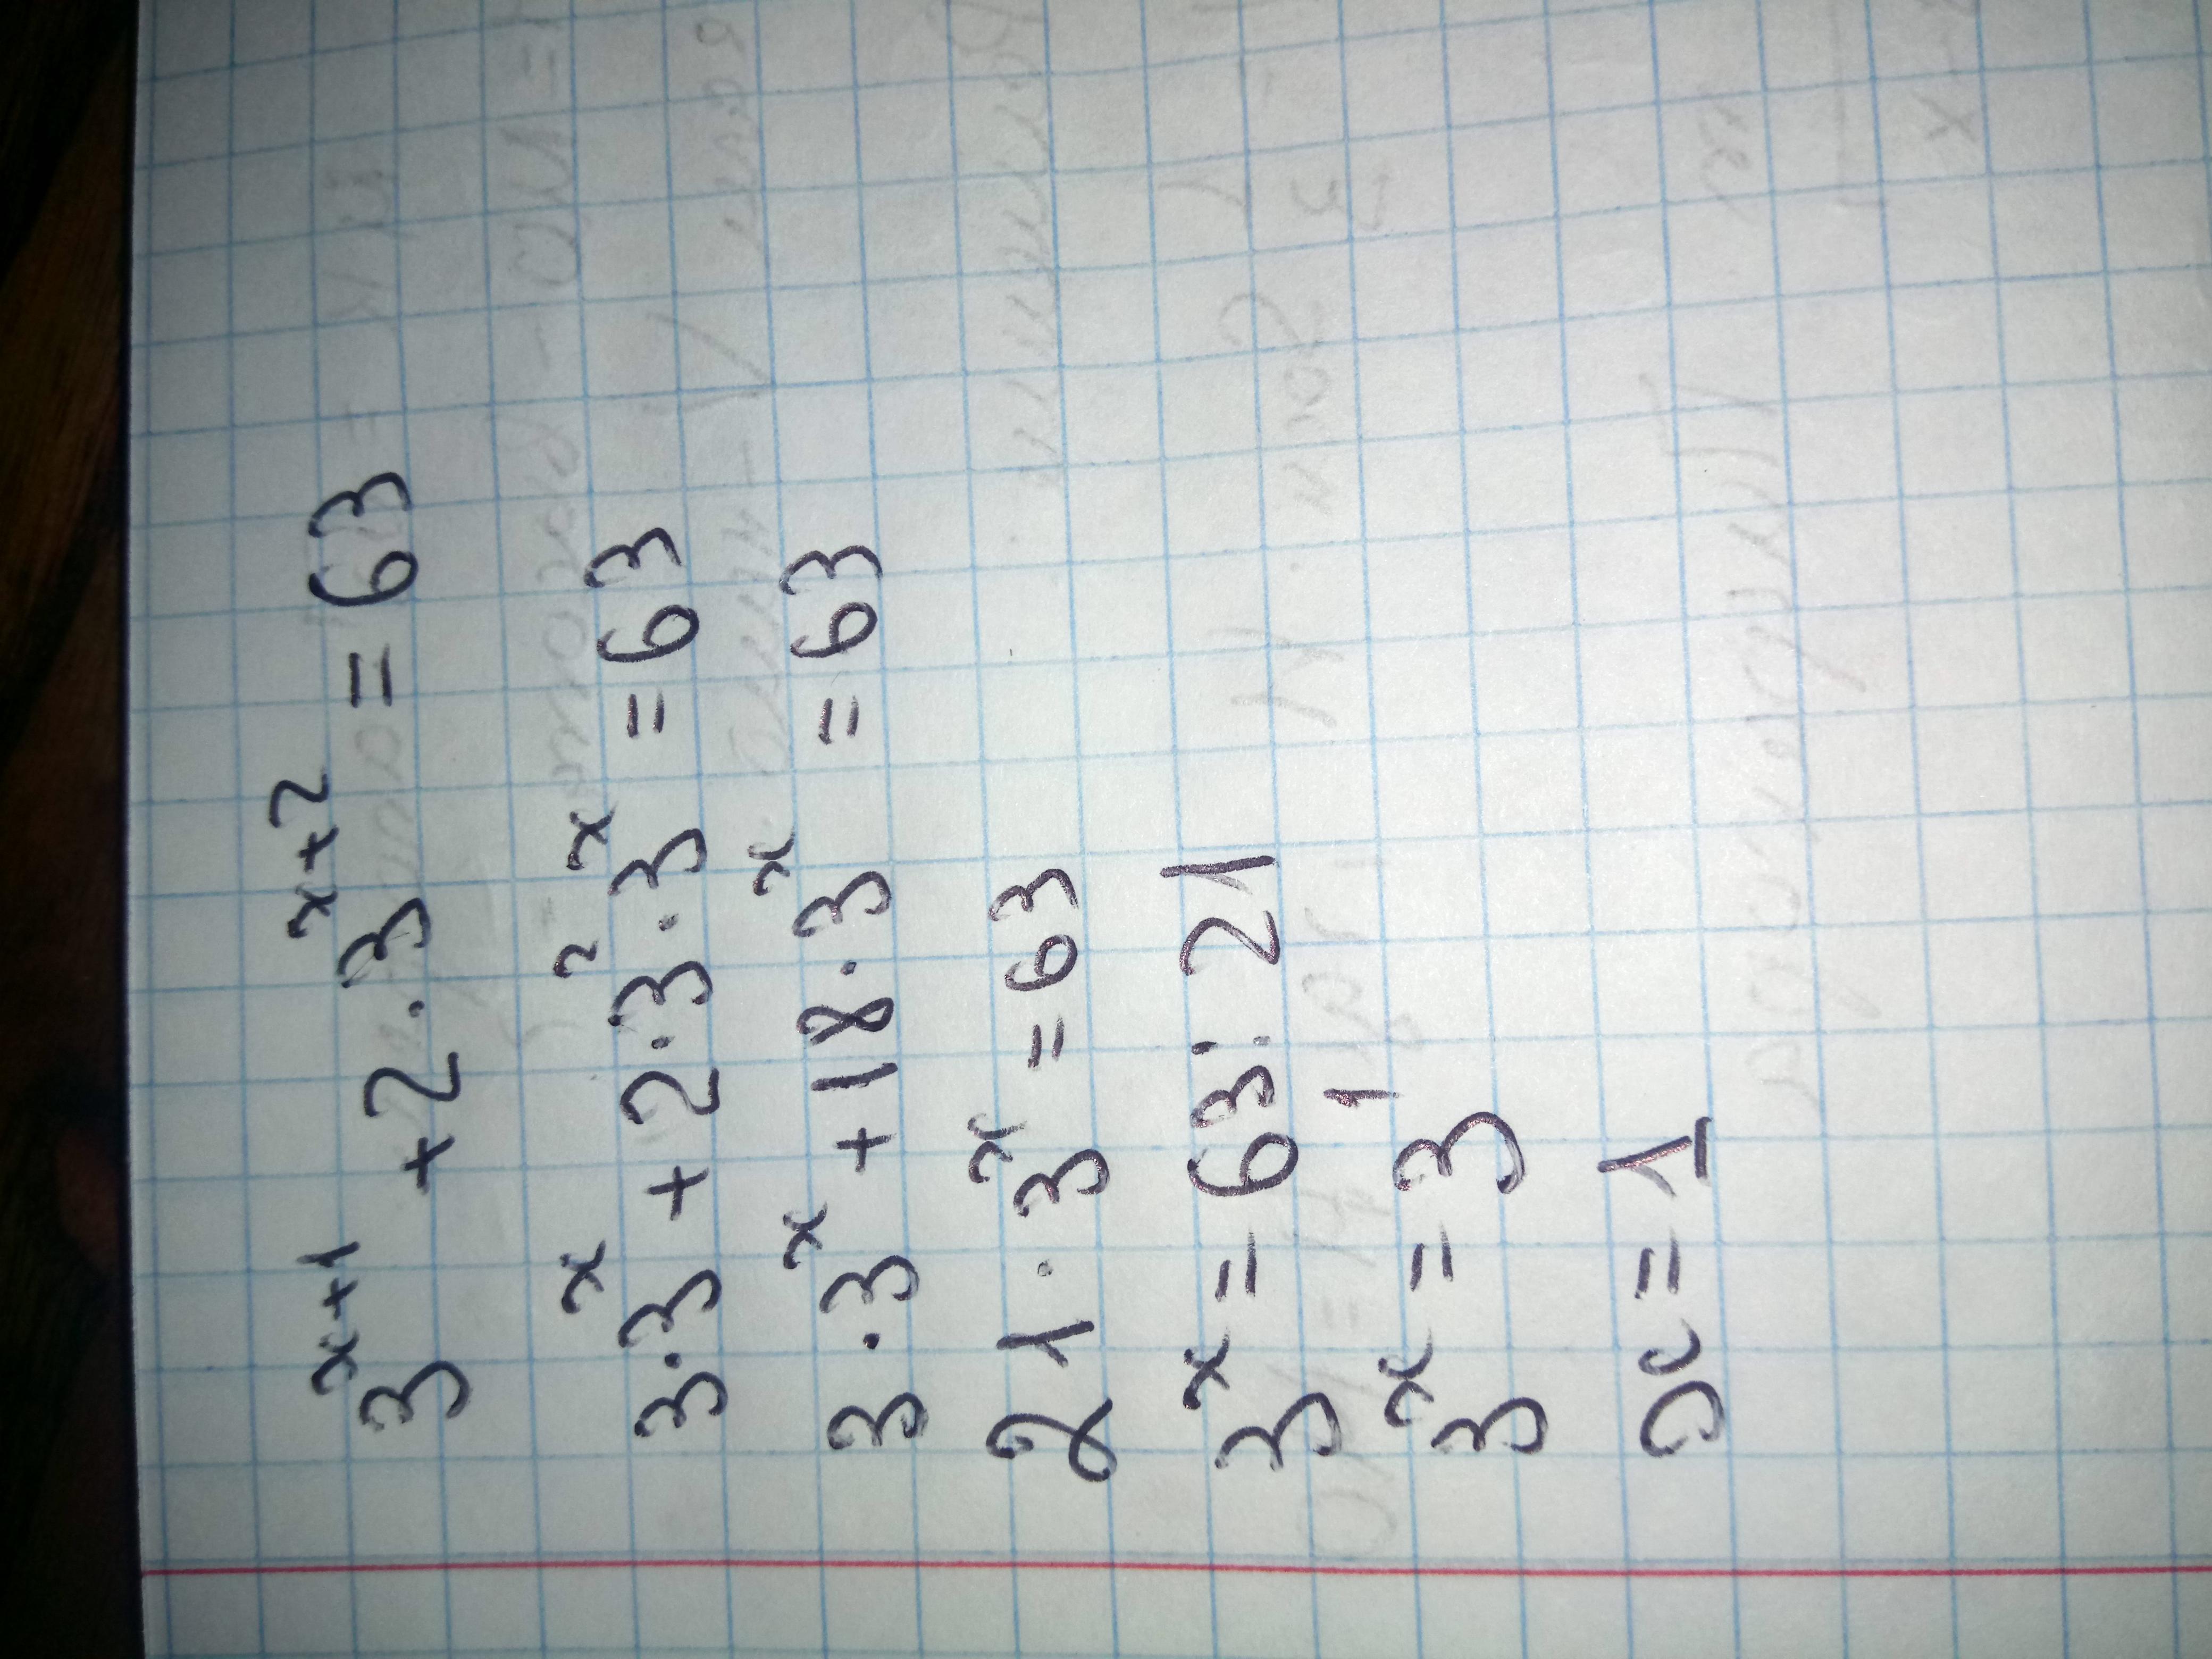 3^(x+1) + 2·3^(x+2) = 63
3·3^x + 2·3^2·3^x = 63
3·3^x + 18·3^x = 63
21·3^x = 63
3^x = 63:21
3^x = 3^1
x = 1